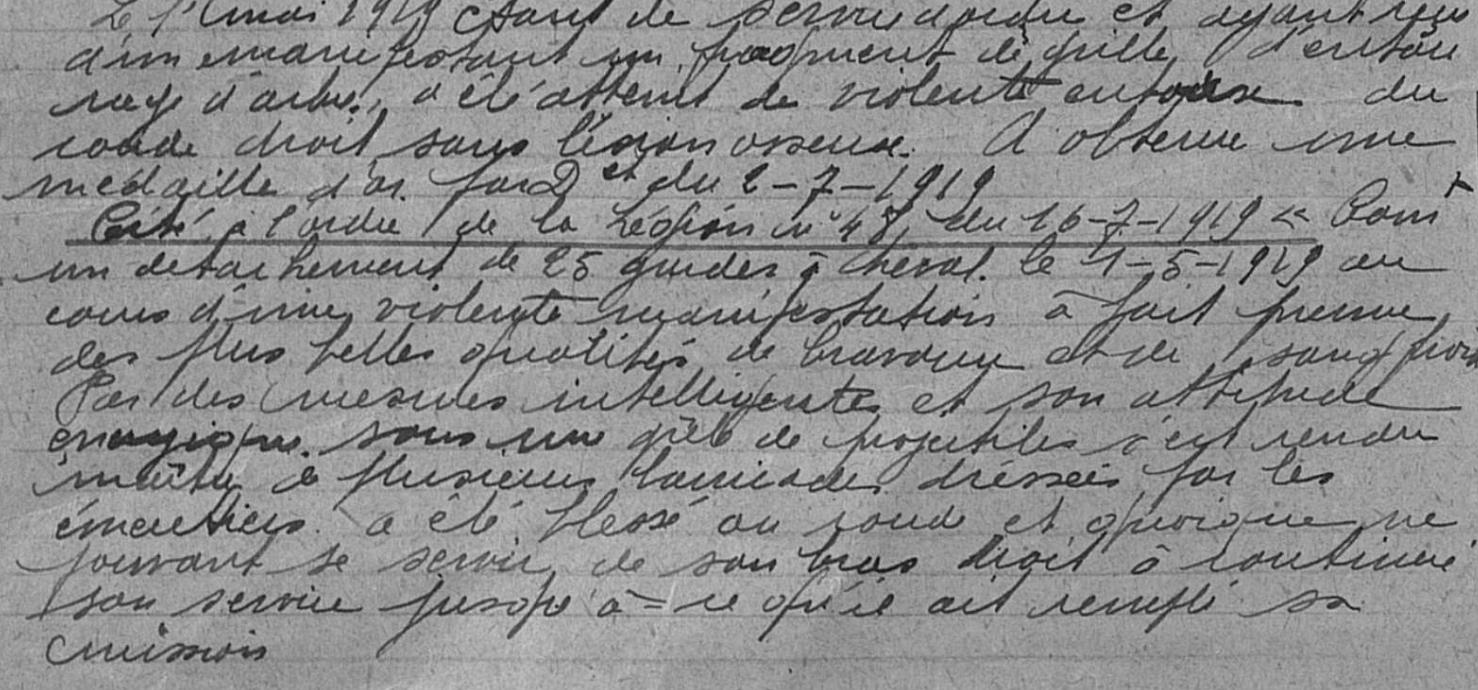 Le 1er mai 1919 étant de service d'ordre et ayant reçu
d'un manifestant un fragment de grille d'entou
rage d'arbre, a été atteint de violente entorse du
coude droit sans lésion osseuse. A obtenu une
médaille d'or par Dct du 2-7-1919
Cité à l'ordre de la Légion n° 48 du 16-7-1919 « Comt
un détachement de 25 gardes à cheval. le 1-5-1919 au
cours d'une violente manifestation à fait preuve
des plus belles qualités de bravoure et de sang froid
Par des mesures intelligentes et son attitude
énergique sous une grêle de projectiles s'est rendu
maître de plusieurs barricades dressées par les
émeutiers. a été blessé au coude et quoique ne
pouvant se servir de son bras droit à continué
son service jusqu'à = ce qu'il ait rempli sa
mission